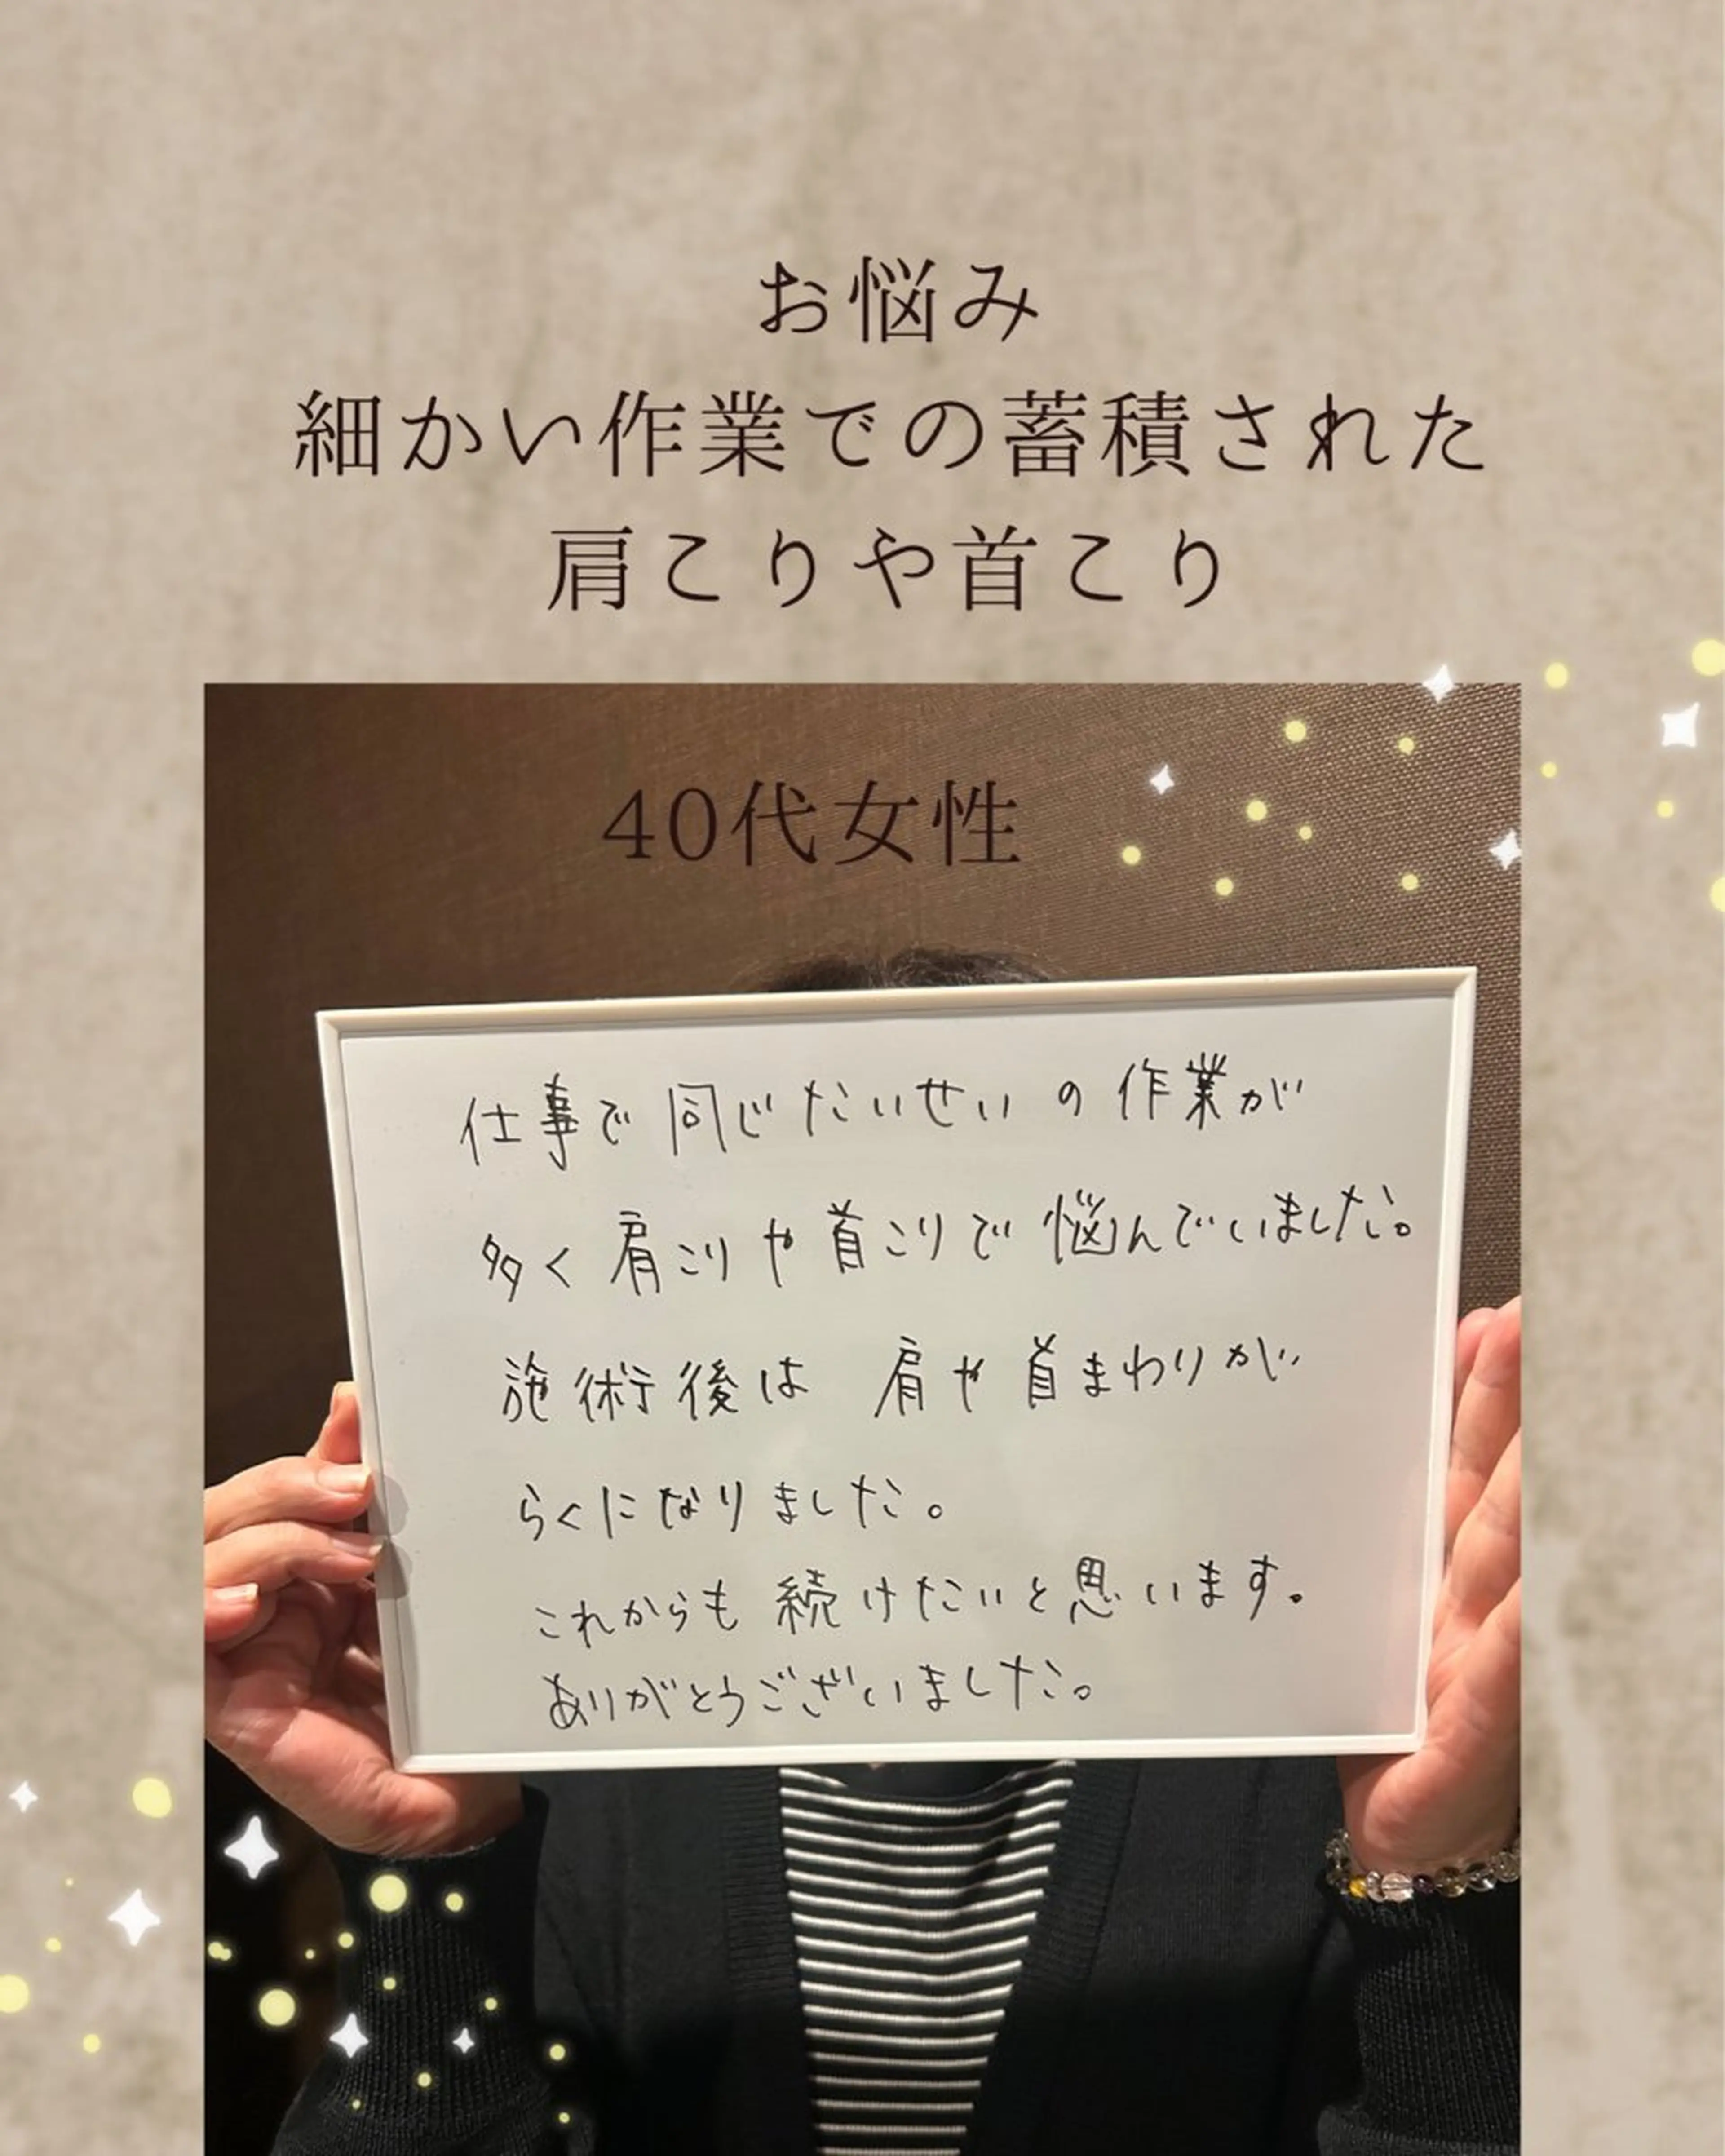 お悩み
細かい作業での蓄積された
肩こりや首こり
40代女性
仕事で同じたいせいの作業が
多く肩こりや首こりで悩んでいました。
施術後は 肩や首まわりが
らくになりました。
これからも続けたいと思います。
ありがとうございました。